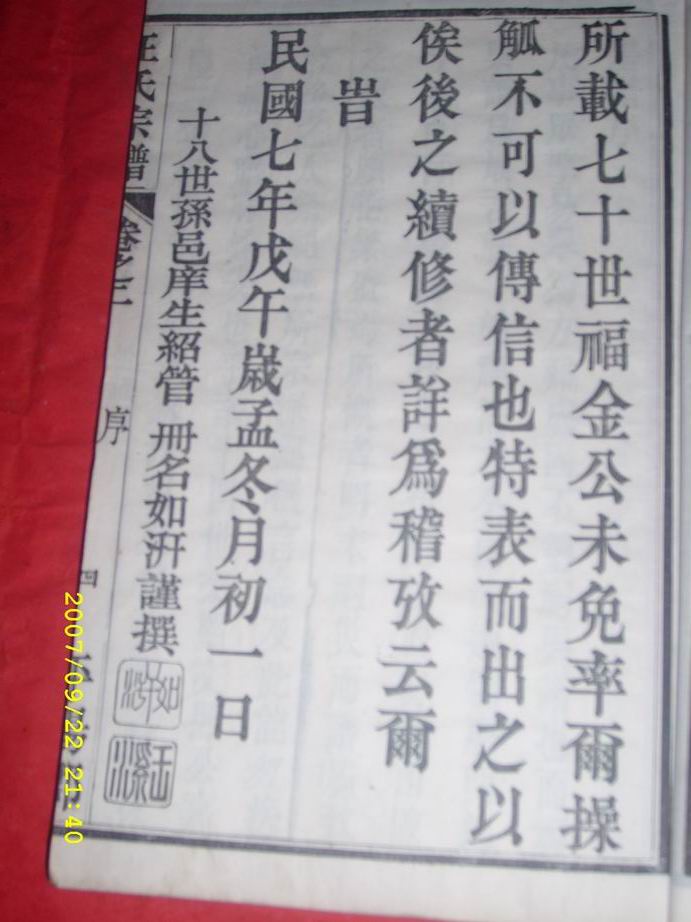 所載七十世福金公未免率爾操
觚不可以傳信也特表而出之以
俟後之續修者詳爲稽攷云爾
旹
民國七年戊午歲孟冬月初一日
十八世孫邑庠生紹管 冊名如汧謹撰
氏宗譜
卷之
序
四
2007/09/22 21:40